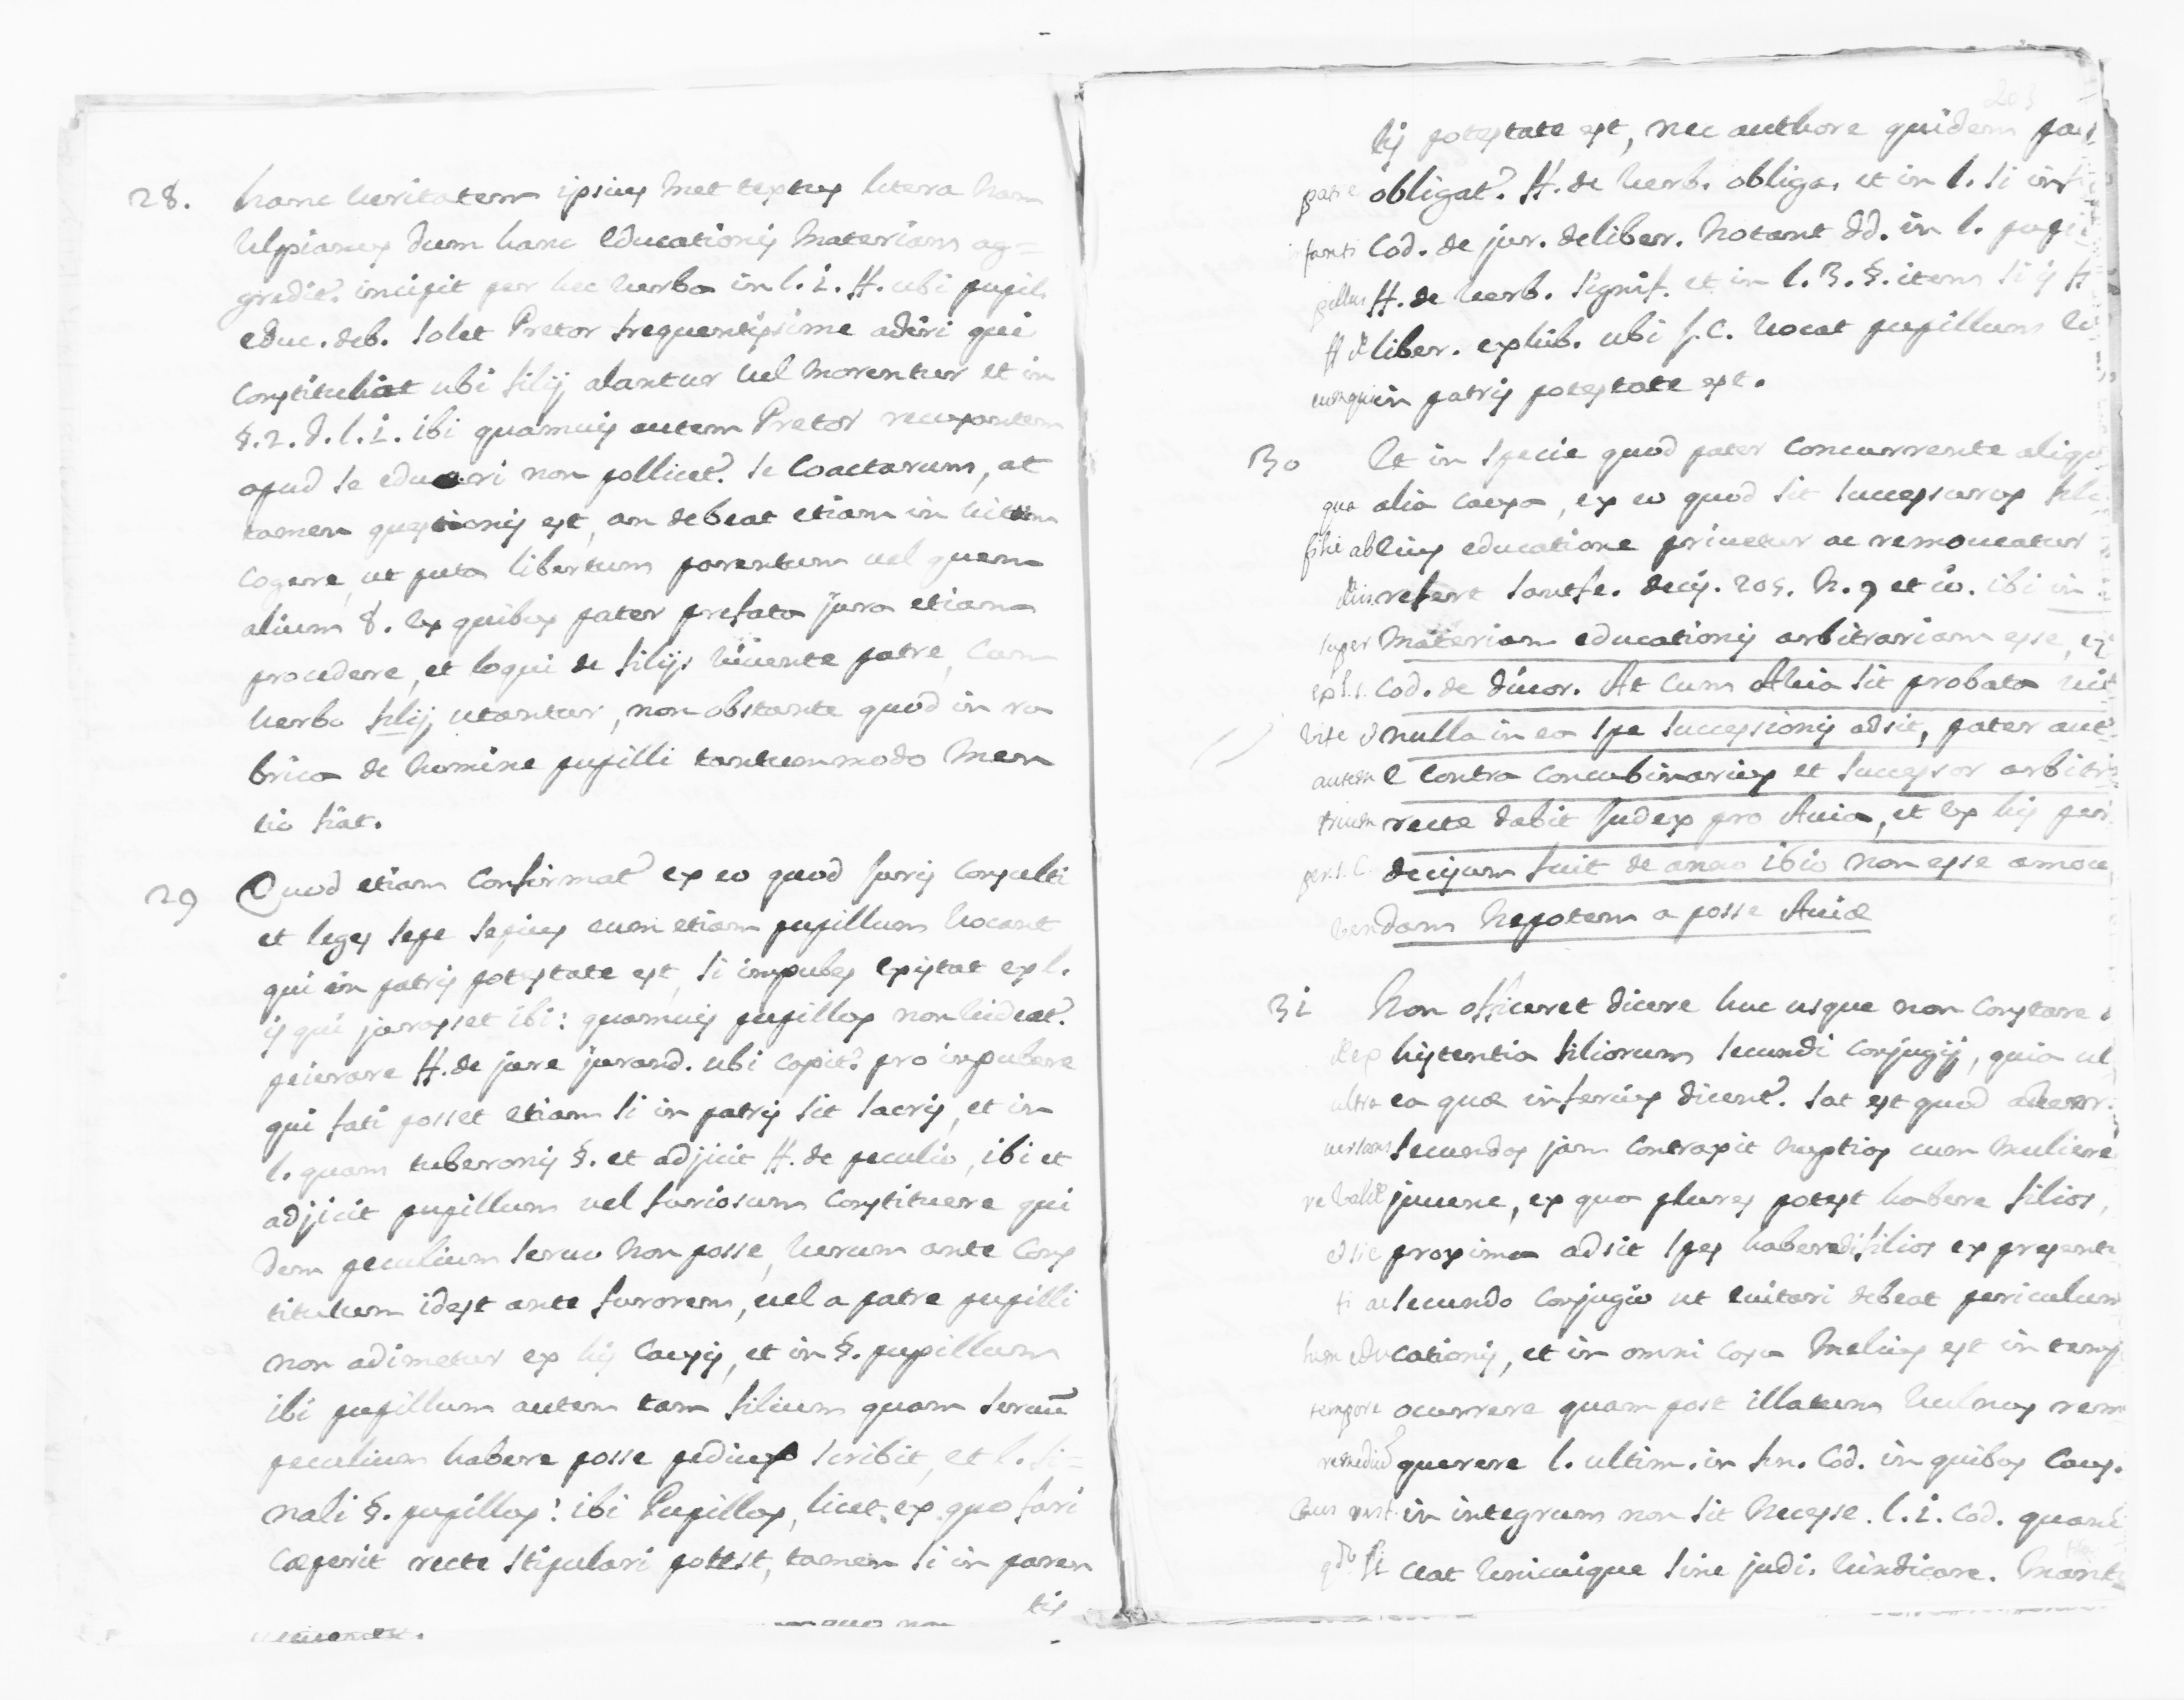 28. hanc veritatem ipsius met textus litera nam
Ulpianus dum hanc educationis materiam ag=
gredit.r incipit per hec verba in l. 1. ff. ubi pupil.
educ. deb. solet Pretor frequentissime adiri qui
constituhat ubi filij alantur vel morentur et in
§. 2. d. l. 1. ibi quamvis autem Pretor recusantem
apud se educari non pollicet.r se coactarum, at
tamen questionis est, an debeat etiam in
cogere, ut puta libertum parentum vel quem
alium &. ex quibus pater prefata jura etiam
procedere, et loqui de filijs vivente patre, cum
verbo filij utantur, non obstante quod in ru
brica de nomine pupilli tantummodo men
tio fiat.
29 Quod etiam confirmat.r ex eo quod juris consulti
et leges sepe sepius eum etiam pupillum vocant
qui in patris potestate est, si impubes existat ex l.
is qui jurasset ibi: quamvis pupillus non videat.r
peierare ff. de jure jurand. ubi capit.r pro impubere
qui fati posset etiam si in patris sit sacris, et in
l. quam tuberonis §. et adjicit ff. de peculio, ibi et
adjicit pupillum vel furiosum constituere qui
dem peculium servo non posse, verum ante cons
titutum idest ante furorem, vel a patre pupilli
non adimetur ex his causis, et in §. pupillum
ibi pupillum autem tam filium quam servũ
peculium habere posse pedius scribit, et l. fi=
nali §. pupillus: ibi Pupillus, licet ex quo fari
cæperit recte stipulari potest, tamen si in paren
tis
tis potestate est, nec authore quidem
patre obligat.r ff. de verb. obliga. et in l. si inf
infanti Cod. de jur. deliber. notant dd. in l. pupi
pillus ff. de verb. signif. et in l. 3. §. item si is ff
ff de liber. exhib. ubi j. C. vocat pupillum
eumqui in patris potestate est.
30 Et in specie quod pater concurrente aliqu
qua alia causa, ex eo quod sit successurus filio
filii ab eius educatione privetur ac removeatur
refert Sanfe. decis. 205. n. 9 et 10. ibi in
super materiam educationis arbitrariam esse, ex
ex l. 1. Cod. de divor. At cum Avia sit probata vit
vite d nulla in ea spe successionis adsit, pater aut
autem e contra concubinarius et successor arbitr
trium recte dabit Judex pro Avia, et ex his per
per. S. C. decisum fuit de anno 1610 non esse amov
vendam nepotem a posse Aviæ
31 Non officeret dicere huc usque non constare
histentia filiorum secundi conjugij, quia ul
ultra ea quæ inferius dicent.r sat est quod adver
versarius secundas jam contraxit nuptias cum muliere
re valde juvene, ex qua plures potest habere filios,
et sic proxima adsit spes haberedi filios ex presenti
ti ac secundo conjugio ut evitari debeat periculum
hum educationis, et in omni casu melius est in temp
tempore ocurrere quam post illatum vulnus rem
remediũ querere l. ultim. in fin. Cod. in quibus caus.
caus rest. in integrum non sit necesse. l. 1. Cod. quand
qdo li ceat unicuique sine judi. vindicare.